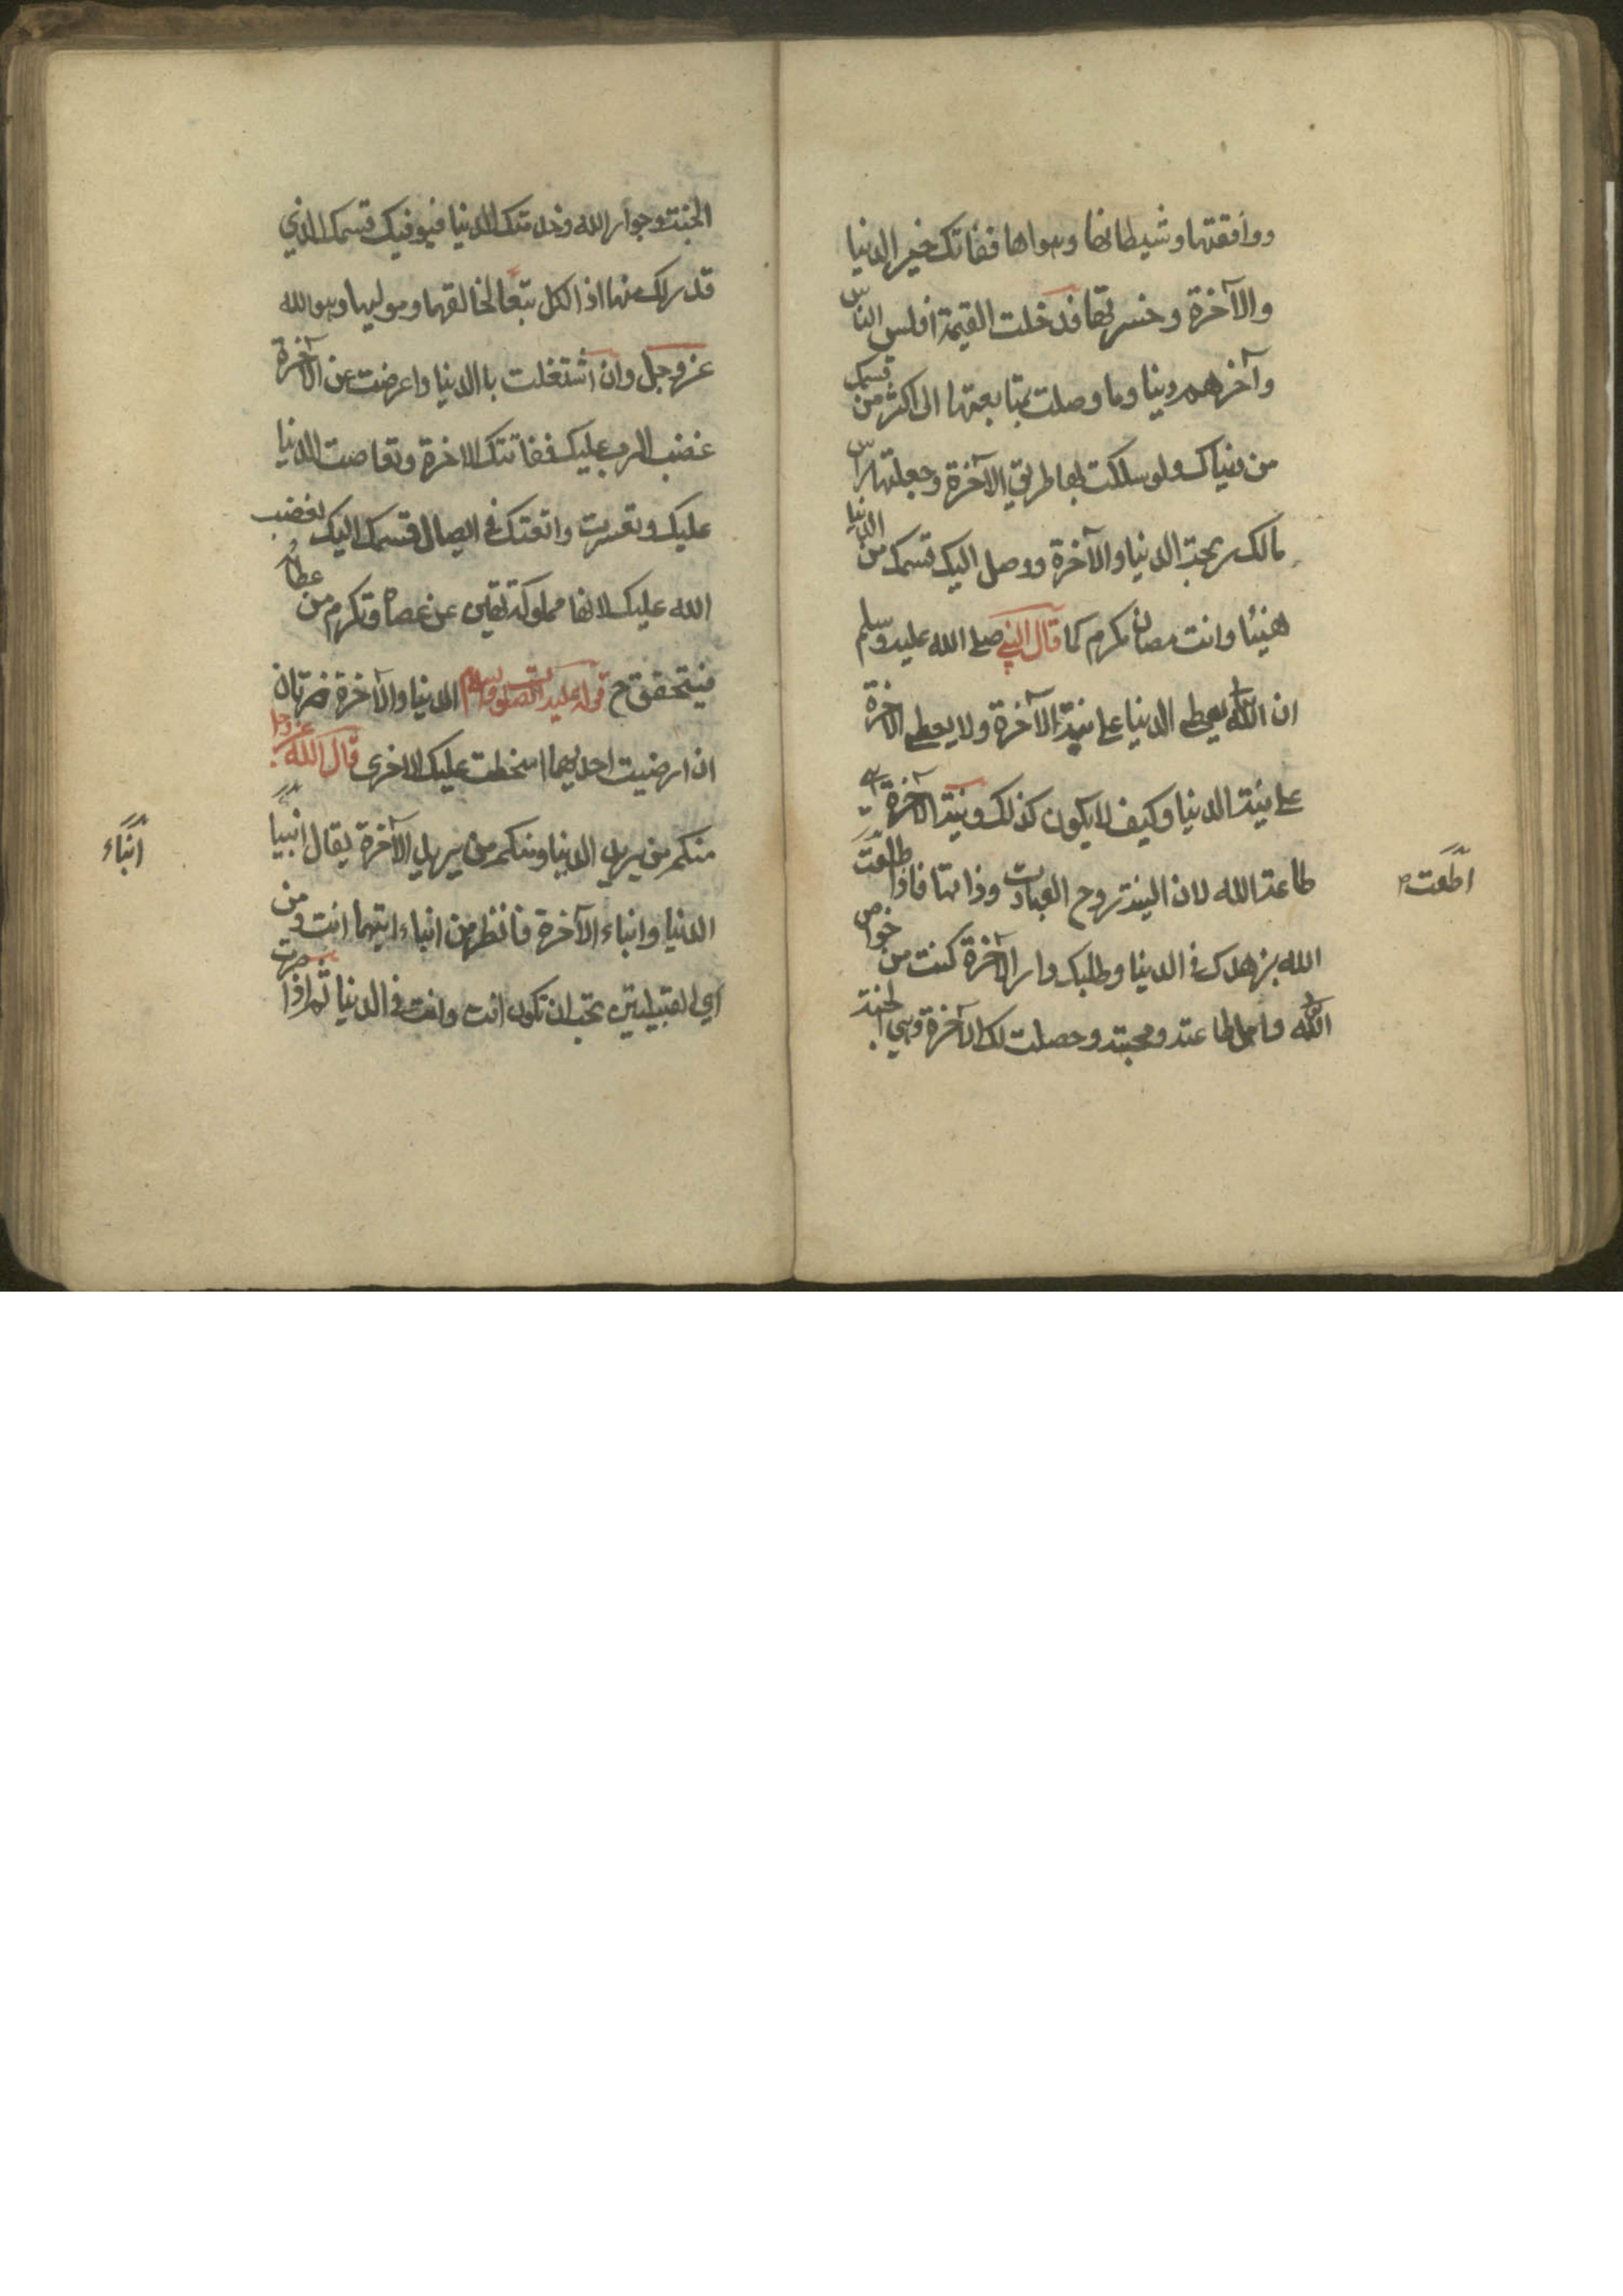 ووافقتها وشيطانها وهواها ففاتك خير الدنيا
والآخرة وخسرتها فدخلت القيمة افلس الناس
وآخرهم دينا وما وصلت بمتابعتها الى اكثر من قسمك
من دنياك ولو سلكت بها طريق الآخرة وجعلتها راس
مالك ربحت الدنيا والآخرة ووصل اليك قسمك من الدنيا
هنيئا وانت مصان مكرم كما قال النبي صلى الله عليه وسلم
ان الله يعطي الدنيا على نية الآخرة ولا يعطي الآخرة
على نية الدنيا وكيف لا يكون كذلك ونية الآخرة
طاعة الله لان النية روح العبادت وذاتها فاذا طلعت
اطعت
الله بزهدك في الدنيا وطلبك دار الآخرة كنت من خواص
الله واهل طاعته ومحبته وحصلت لك الآخرة وهي الجنة
الجنة وجوار الله وخدمتك الدنيا فيوفيك قسمك الذي
قدر لك منها اذ الكل تبعا لخالقها ومولاها وهو الله
عز وجل وان اشتغلت باالدنيا واعرضت عن الآخرة
غضب الرب عليك ففاتتك الاخرة وتعاصت الدنيا
عليك وتعسرت واتعبتك في ايصال قسمك اليك لغضب
الله عليك لانها مملوكة تهين عن عصاه وتكرم من عطاه
فيتحقق ح قوله عليه الصلوة والسلام الدنيا والآخرة ضرتان
ان ارضيت احديهما اسخطت عليك الاخرى قال الله عز وجل
منكم من يريد الدنيا ومنكم من يريد الآخرة يقال انبيا
ابناء
الدنيا وابناء الآخرة فانظر من ابناء ايتهما انت ومن
اي القبيلتين تحب ان تكون انت وانت في الدنيا ثم اذا صرت